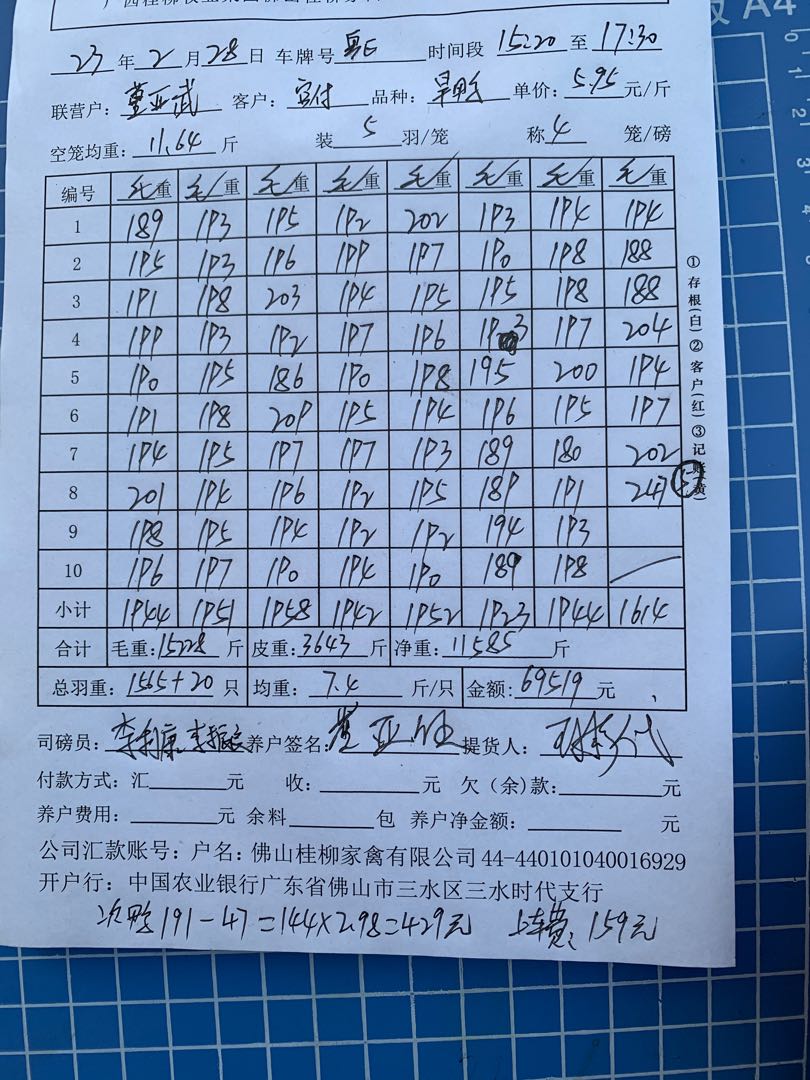 23 年 2 月 28 日 车牌号 粤E 时间段 15:20 至 17:30
联营户: 董亚武 客户: 宝付 品种: 旱鸭 单价: 5.95 元/斤
空笼均重: 11.64 斤 装 5 羽/笼 称 4 笼/磅
编号 毛重 毛重 毛重 毛重 毛重 毛重 毛重 毛重
1 189 193 195 192 202 193 194 194
2 195 193 196 199 197 190 198 188
3 191 198 203 194 195 195 198 188
4 199 193 192 197 196 193 197 204
5 190 195 186 190 198 195 200 194
6 191 198 209 195 194 196 195 197
7 194 195 197 197 193 189 180 202
8 201 194 196 192 195 189 191 247 ⑤
9 198 195 194 192 192 194 193
10 196 197 190 194 190 189 198
小计 1944 1951 1958 1942 1952 1923 1944 1614
合计 毛重: 15228 斤 皮重: 3643 斤 净重: 11585 斤
总羽重: 1565+20 只 均重: 7.4 斤/只 金额: 69519 元
①存根(白)②客户(红)③记账(黄)
司磅员: 养户签名: 董亚武 提货人:
付款方式: 汇 元 收: 元 欠(余)款: 元
养户费用: 元 余料 包 养户净金额: 元
公司汇款账号: 户名: 佛山桂柳家禽有限公司 44-440101040016929
开户行: 中国农业银行广东省佛山市三水区三水时代支行
次鸭 191-47=144×2.98=429元 上车费: 159元
A4